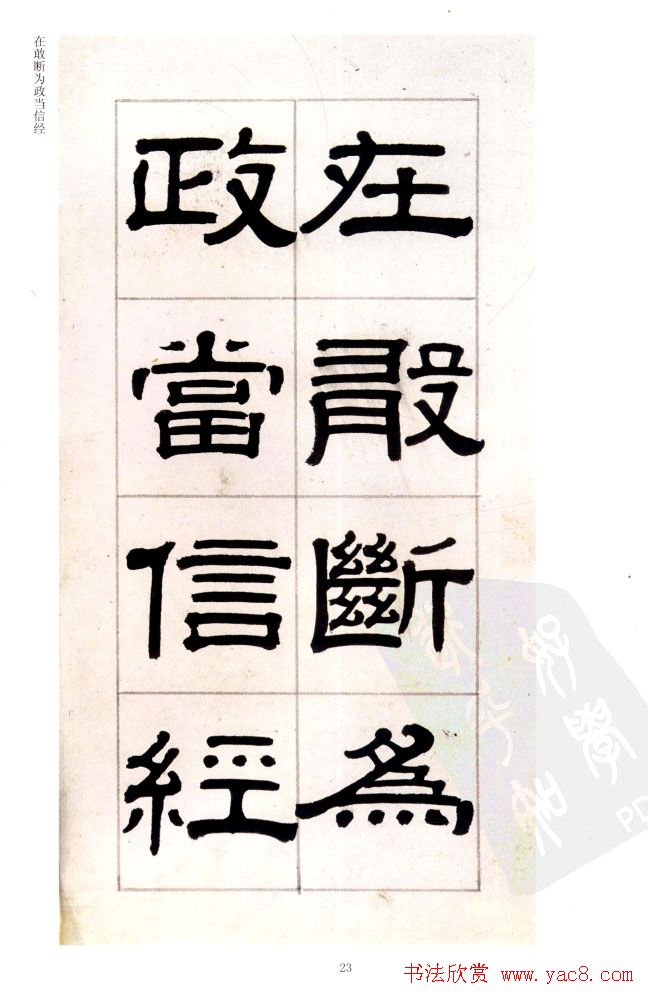 在敢断为政当信经
在敢斷為
政當信經
23
书法欣赏 www.yac8.com